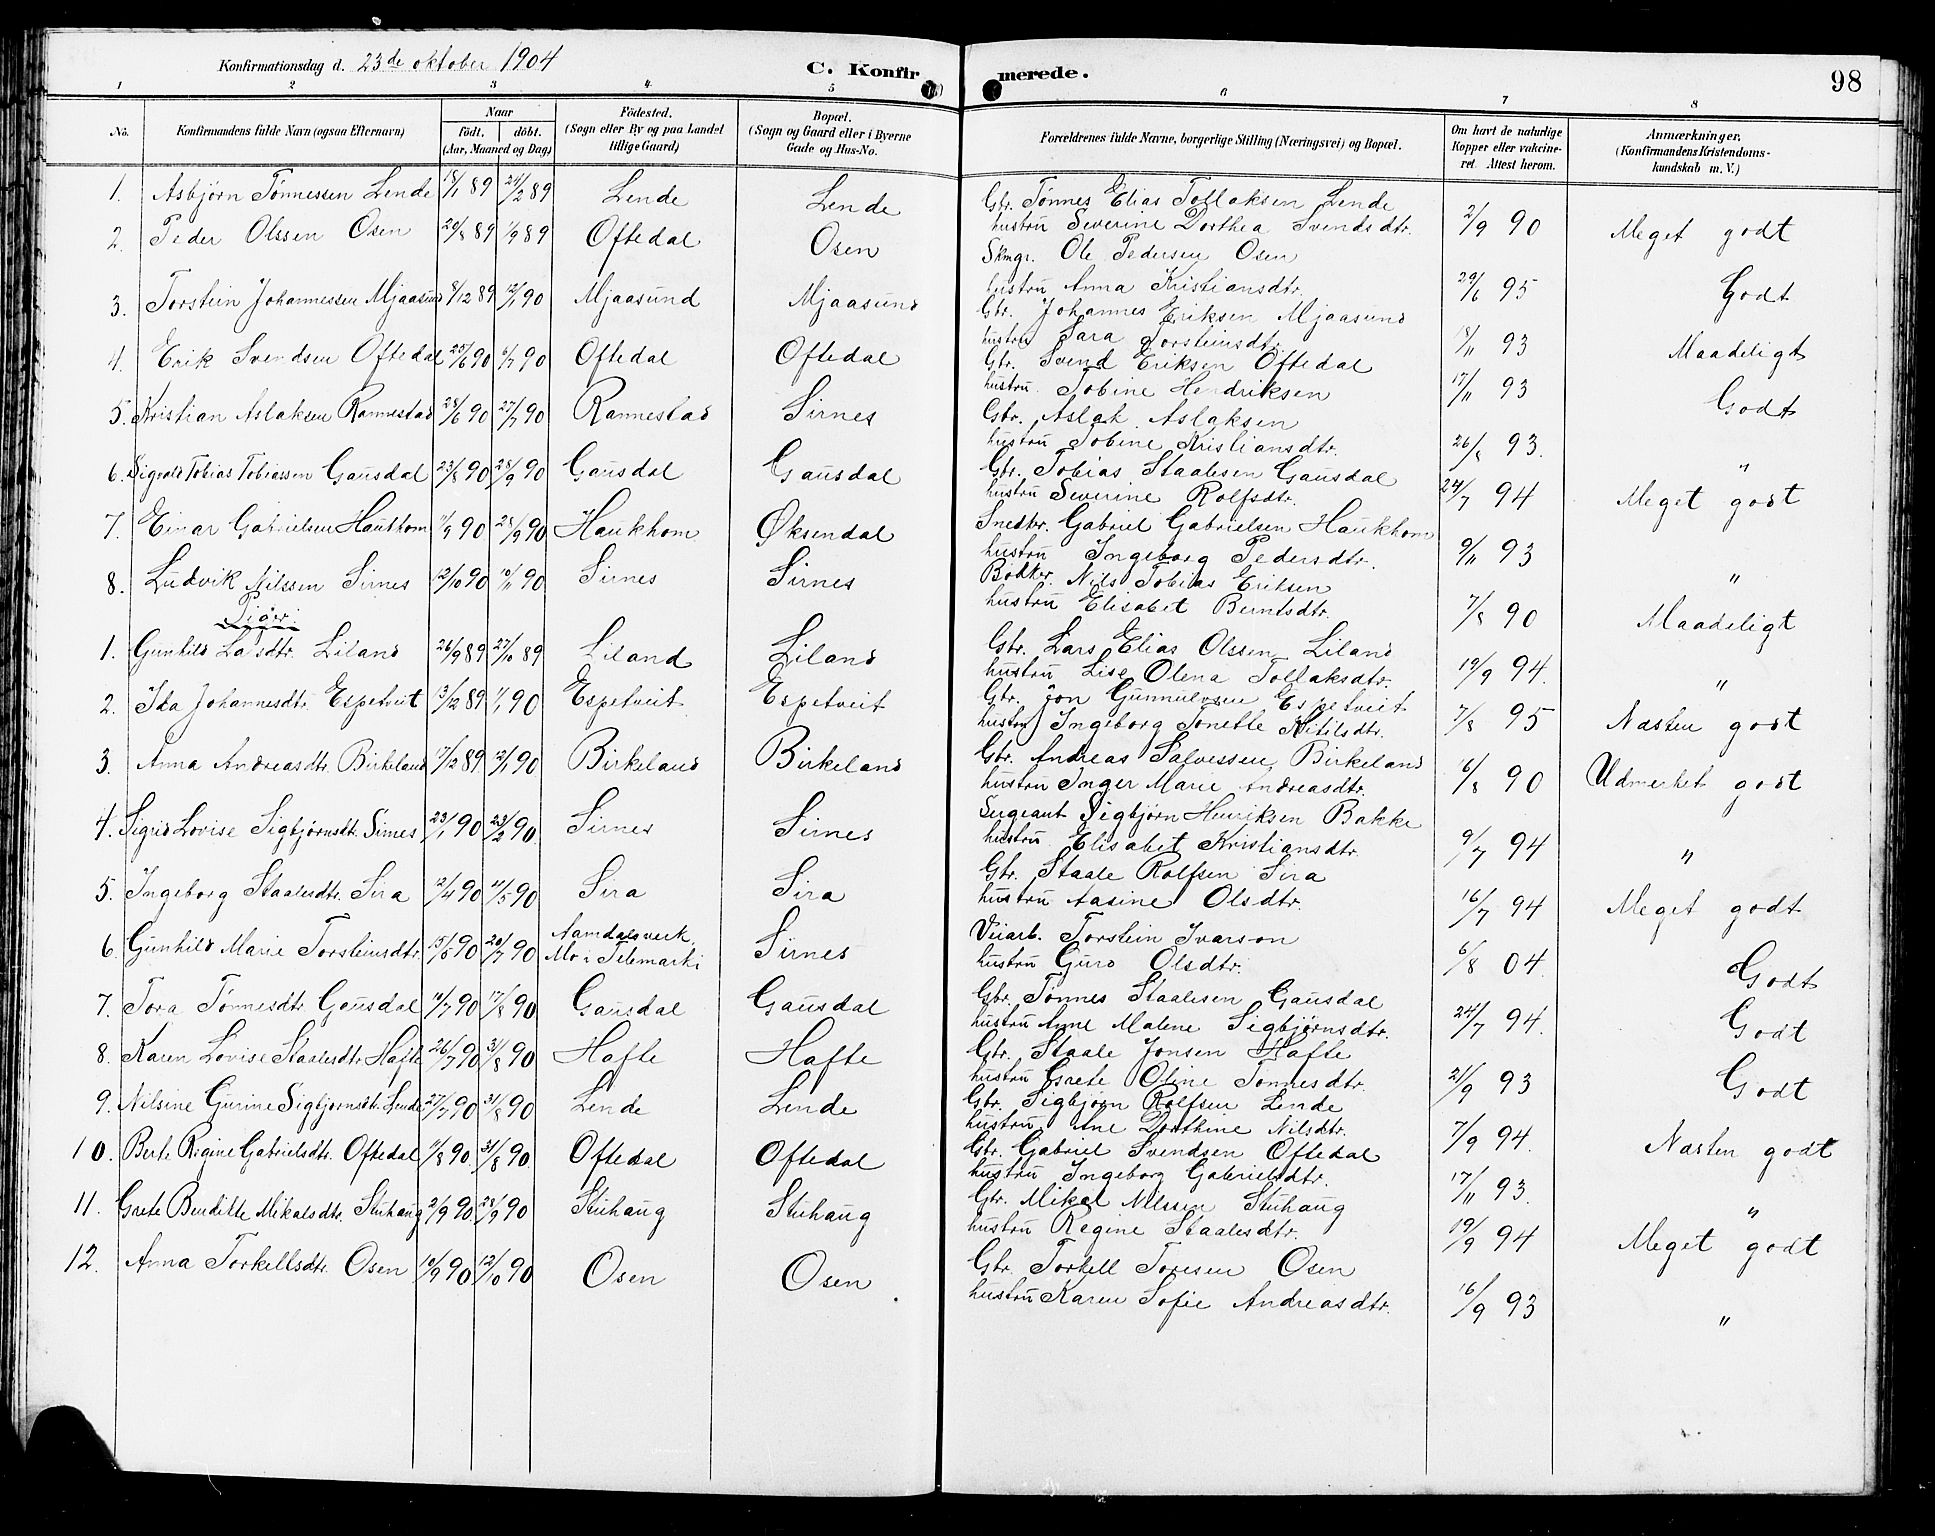 Konfirmationsdag d. 23de oktober 1904
C. Konfirmerede.
98
1 2 3 4 5 6 7 8
No. Konfirmandens fulde Navn (ogsaa Efternavn) Naar födt. döbt. (Aar, Maaned og Dag) Födested. (Sogn eller By og paa Landet tillige Gaard) Bopæl. (Sogn og Gaard eller i Byerne Gade og Hus-No. Forældrenes fulde Navne, borgerlige Stilling (Næringsvei) og Bopæl. Om havt de naturlige Kopper eller vakcineret. Attest herom. Anmærkninger. (Konfirmandens Kristendomskundskab m. V.)
1. Asbjörn Tönnessen Lende 18/1 89 24/2 89 Lende Lende Gbr. Tönnes Elias Tollaksen Lende
hustru Severine Dorthea Svendsdtr. 2/9 90 Meget godt
2. Peder Olssen Osen 29/8 89 1/9 89 Oftedal Osen Skmgr. Ole Pedersen Osen
hustru Anna Kristiansdtr. 29/6 95 Godt
3. Torstein Johannessen Mjaasund 8/12 89 12/1 90 Mjaasund Mjaasund Gbr. Johannes Eriksen Mjaasund
hustru Sara Torsteinsdtr. 18/11 93 Maadeligt
4. Erik Svendsen Oftedal 25/6 90 6/7 90 Oftedal Oftedal Gbr. Svend Eriksen Oftedal
hustru Tobine Hendriksen 17/11 93 Godt
5. Kristian Aslaksen Rannestad 28/6 90 27/7 90 Rannestad Sirnes Gbr. Aslak Aslaksen
hustru Tobine Kristiansdtr. 26/8 93. "
6. Sigvald Tobias Tobiassen Gausdal 23/8 90 28/9 90 Gausdal Gausdal Gbr. Tobias Staalesen Gausdal
hustru Severine Rolfsdtr. 24/7 94 Meget godt
7. Einar Gabrielsen Haukhom 11/9 90 28/9 90 Haukhom Øksendal Snedkr. Gabriel Gabrielsen Haukhom
hustru Ingeborg Pedersdtr. 9/11 93 "
8. Ludvik Nilssen Sirnes 12/10 90 10/11 90 Sirnes Sirnes Bödker. Nils Tobias Eriksen
hustru Elisabet Berntsdtr. 7/8 90 Maadeligt
Piger.
1. Gunhild Larsdtr. Liland 26/9 89 27/10 89 Liland Liland Gbr. Lars Elias Olssen Liland
hustru Lise Olena Tollaksdtr. 19/9 94. "
2. Ida Johannesdtr. Espetveit 13/12 89 1/1 90 Espetveit Espetveit Gbr. Jon Gunnulvsen Espetveit
hustru Ingeborg Tonette Ketilsdtr. 7/8 95 Næsten godt
3. Anna Andreasdtr. Birkeland 17/12 89 12/1 90 Birkeland Birkeland Gbr. Andreas Salvessen Birkeland
hustru Inger Marie Andreasdtr. 6/8 90 Udmerket godt
4. Sigrid Lovise Sigbjörnsdtr. Sirnes 23/1 90 23/2 90 Sirnes Sirnes Sergeant Sigbjörn Henriksen Bakke
hustru Elisabet Kristiansdtr. 9/7 94 "
5. Ingeborg Staalesdtr. Sira 12/4 90 11/5 90 Sira Sira Gbr. Staale Rolfsen Sira
hustru Aasine Olsdtr. 16/7 94 Meget godt
6. Gunhild Marie Torsteinsdtr. 15/5 90 20/7 90 Aamdalsverk. Mo i Telemarki Sirnes Veiarb. Torstein Ivarson
hustru Guro Olsdtr. 6/8 04. Godt
7. Tora Tönnesdtr. Gausdal 14/7 90 17/8 90 Gausdal Gausdal Gbr. Tönnes Staalesen Gausdal
hustru Anne Malene Sigbjörnsdtr. 24/7 94. Godt
8. Karen Lovise Staalesdtr. Hafte 26/7 90 31/8 90 Hafte Hafte Gbr. Staale Jonsen Hafte
hustru Grete Oline Tönnesdtr. 21/9 93 Godt
9. Nilsine Gurine Sigbjörnsdtr. Lende 27/7 90 31/8 90 Lende Lende Gbr. Sigbjörn Rolfsen Lende
hustru Ane Dorthine Nilsdtr. 7/9 94. Næsten godt
10. Berte Regine Gabrielsdtr. Oftedal 11/8 90. 31/8 90. Oftedal Oftedal Gbr. Gabriel Svendsen Oftedal
hustru Ingeborg Gabrielsdtr. 17/11 93. "
11. Grete Benditte Mikalsdtr. Stuhaug 2/9 90. 28/9 90 Stuhaug Stuhaug Gbr. Mikal Nilssen Stuhaug
hustru Regine Staalesdtr. 19/9 94 Meget godt
12. Anna Torkellsdtr. Osen 10/9 90 12/10 90 Osen Osen Gbr. Torkell Toresen Osen
hustru Karen Sofie Andreasdtr. 16/9 93 "